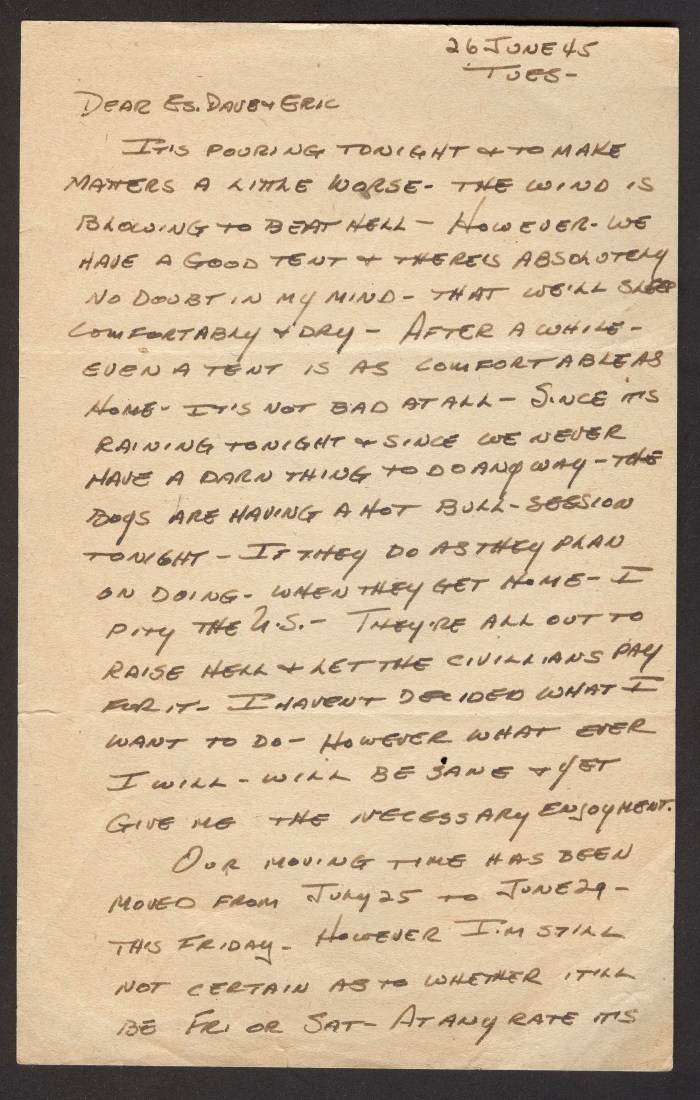 26 JUNE 45
TUES-
DEAR ES. DAVE & ERIC
IT'S POURING TONIGHT & TO MAKE
MATTERS A LITTLE WORSE- THE WIND IS
BLOWING TO BEAT HELL - HOWEVER- WE
HAVE A GOOD TENT & THERE'S ABSOLUTELY
NO DOUBT IN MY MIND - THAT WE'LL SLEEP
COMFORTABLY & DRY - AFTER A WHILE -
EVEN A TENT IS AS COMFORTABLE AS
HOME- IT'S NOT BAD AT ALL - SINCE IT'S
RAINING TONIGHT & SINCE WE NEVER
HAVE A DARN THING TO DO ANYWAY - THE
BOYS ARE HAVING A HOT BULL-SESSION
TONIGHT - IF THEY DO AS THEY PLAN
ON DOING- WHEN THEY GET HOME - I
PITY THE U.S. - THEY'RE ALL OUT TO
RAISE HELL & LET THE CIVILLIANS PAY
FOR IT- I HAVENT DECIDED WHAT I
WANT TO DO - HOWEVER WHAT EVER
I WILL - WILL BE SANE & YET
GIVE ME THE NECESSARY ENJOYMENT.
OUR MOVING TIME HAS BEEN
MOVED FROM JULY 25 TO JUNE 29 -
THIS FRIDAY- HOWEVER I'M STILL
NOT CERTAIN AS TO WHETHER IT'LL
BE FRI OR SAT - AT ANY RATE IT'S